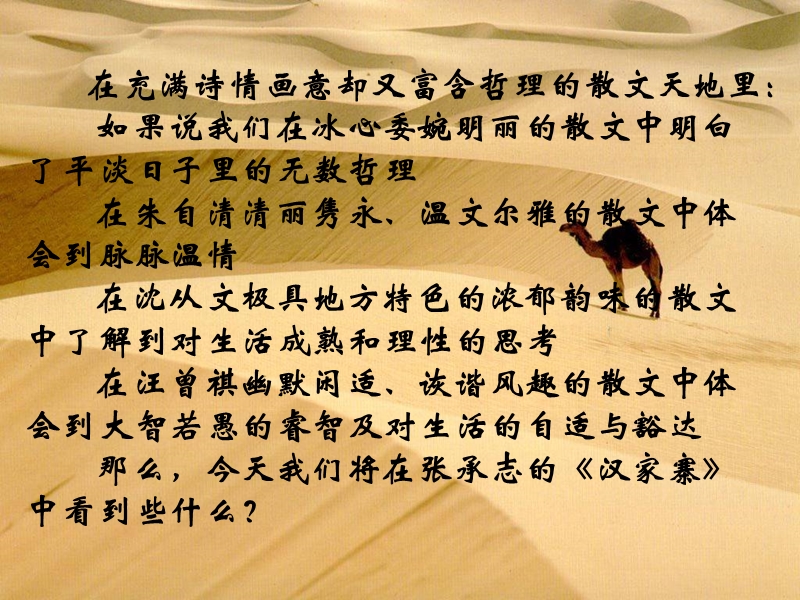 在充满诗情画意却又富含哲理的散文天地里：
如果说我们在冰心委婉明丽的散文中明白
了平淡日子里的无数哲理
在朱自清清丽隽永、温文尔雅的散文中体
会到脉脉温情
在沈从文极具地方特色的浓郁韵味的散文
中了解到对生活成熟和理性的思考
在汪曾祺幽默闲适、诙谐风趣的散文中体
会到大智若愚的睿智及对生活的自适与豁达
那么，今天我们将在张承志的《汉家寨》
中看到些什么？